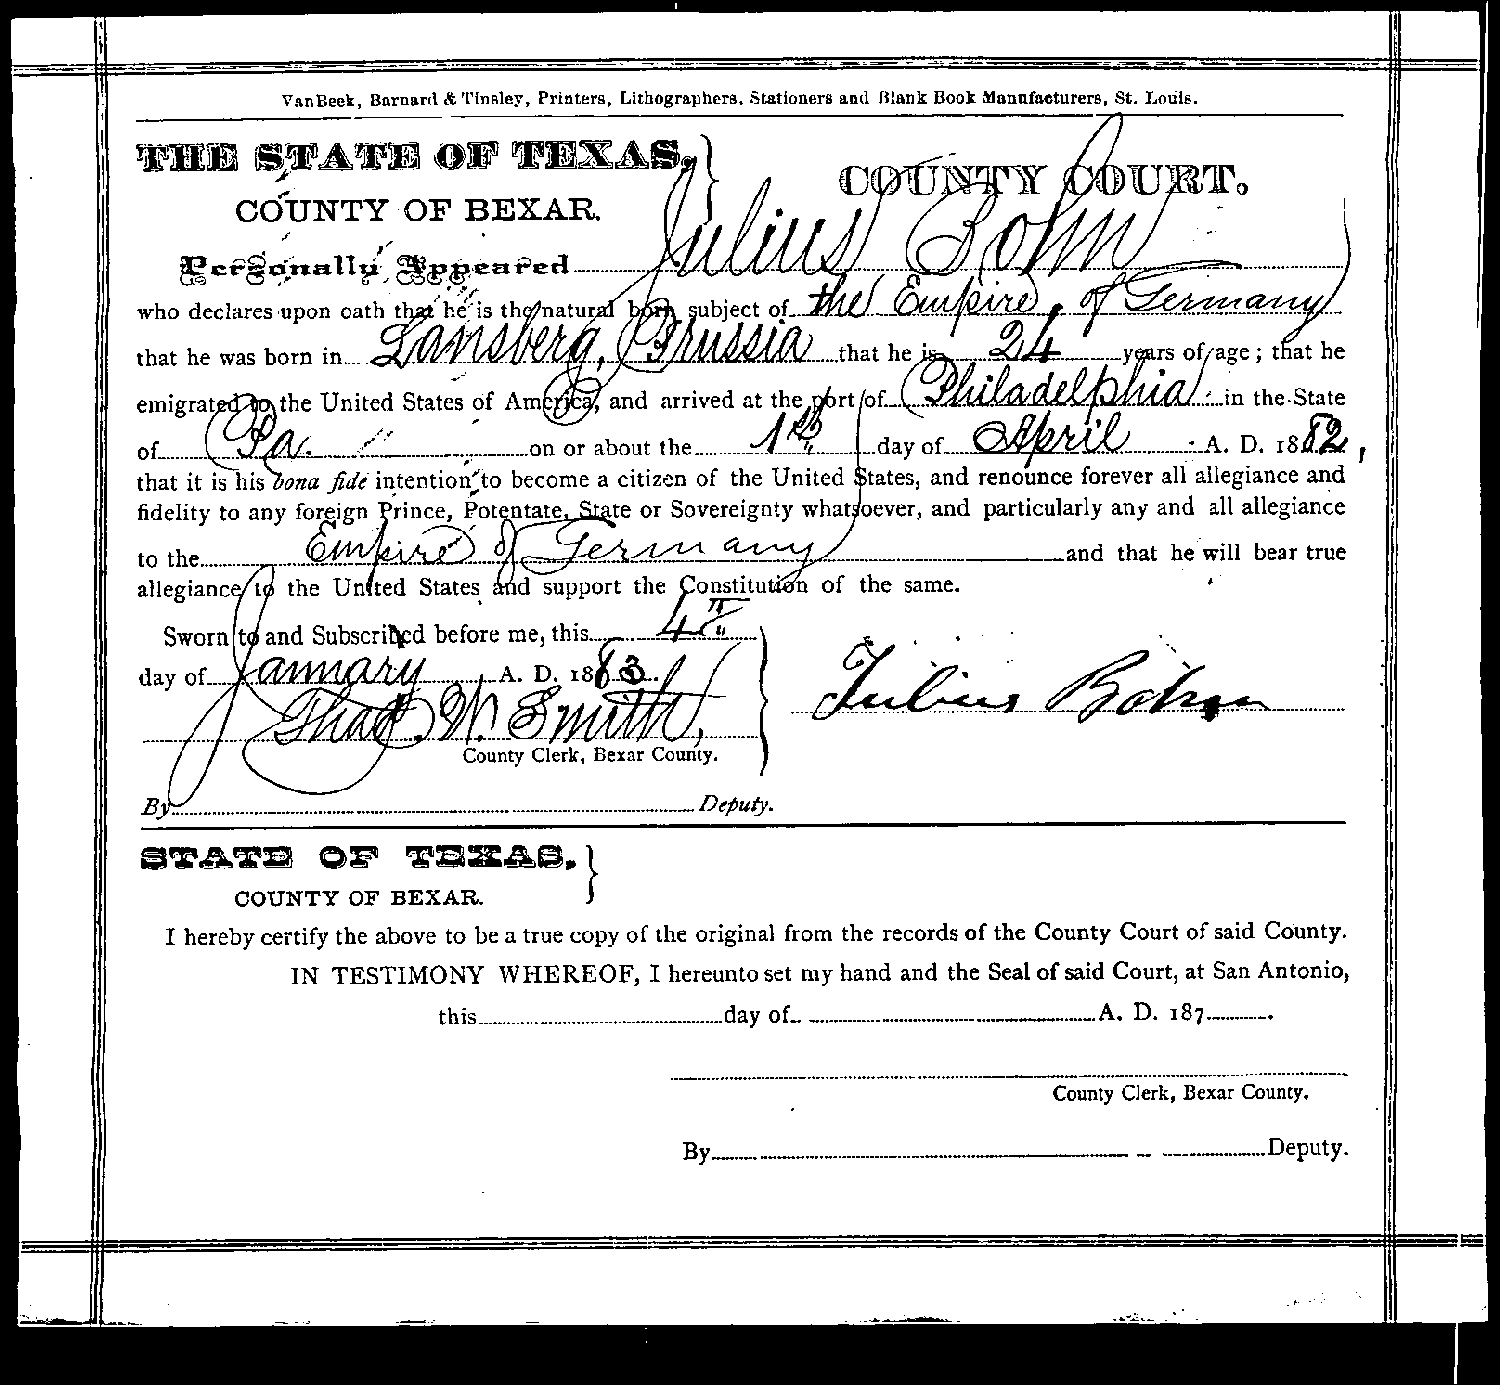 VanBeek, Barnard & Tinsley, Printers, Lithographers, Stationers and Blank Book Manufacturers, St. Louis.
THE STATE OF TEXAS,
COUNTY OF BEXAR.
COUNTY COURT.
Personally Appeared Julius Bohm
who declares upon oath that he is the natural born subject of the Empire of Germany
that he was born in Lansberg, Prussia that he is 24 years of age; that he
emigrated to the United States of America, and arrived at the port of Philadelphia in the State
of Pa. on or about the 1st day of April A. D. 1882,
that it is his bona fide intention to become a citizen of the United States, and renounce forever all allegiance and
fidelity to any foreign Prince, Potentate, State or Sovereignty whatsoever, and particularly any and all allegiance
to the Empire of Germany and that he will bear true
allegiance to the United States and support the Constitution of the same.
Sworn to and Subscribed before me, this 4th
day of January A. D. 1883.
Thad. W. Smith,
County Clerk, Bexar County.
Julius Bohm
By Deputy.
STATE OF TEXAS,
COUNTY OF BEXAR.
I hereby certify the above to be a true copy of the original from the records of the County Court of said County.
IN TESTIMONY WHEREOF, I hereunto set my hand and the Seal of said Court, at San Antonio,
this day of A. D. 187 .
County Clerk, Bexar County.
By Deputy.